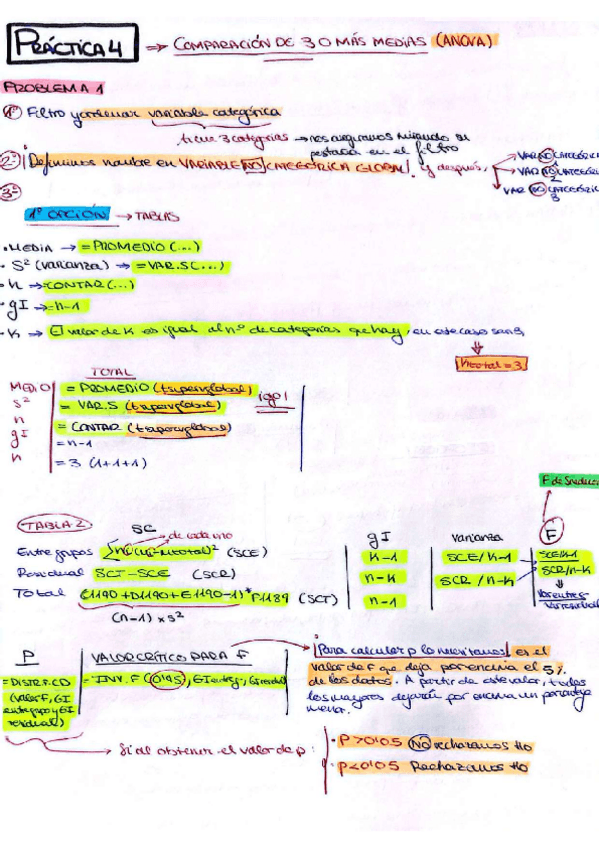 PRÁCTICA 4 ⇒ COMPARACIÓN DE 3 O MÁS MEDIAS (ANOVA)
PROBLEMA 1
1º Filtro y ordenar variable categórica
tiene 3 categorías → nos aseguramos mirando su
pestaña en el filtro
2º Definimos nombre en VARIABLE NO CATEGÓRICA GLOBAL y después,
VAR NO CATEGÓRIC
1
VAR NO CATEGÓRI
2
VAR NO CATEGÓRIC
3
3º
1ª OPCIÓN → TABLAS
· MEDIA → =PROMEDIO (...)
· S² (varianza) → =VAR.S(...)
· n → =CONTAR(...)
· gl → =n-1
· K → El valor de K es igual al nº de categorías que hay, en este caso son 3
Ktotal = 3
TOTAL
MEDIO = PROMEDIO (tsupervglobal)
S² = VAR.S (tsupervglobal)
igol
n = CONTAR (tsupervglobal)
gl = n-1
= 3 (1+1+1)
F de Snedec
TABLA 2
SC → de cada uno
gl varianza F
Entre grupos (SCE) K-1 SCE/K-1 SCE/K-1
Residual SCT-SCE (SCR) n-K SCR/n-K SCR/n-K
Total (E1190+D1190+E1190-1)*F1189 (SCT) n-1
(n-1) x s²
P VALOR CRÍTICO PARA F
Para calcular p lo necesitamos, es el
valor de F que deja por encima el 5%
de los datos. A partir de este valor, todos
los mayores dejarán por encima un porcentaje
menor.
=DISTR.F.CD
(valor F, GI
entre grupo y GI
residual)
=INV.F (0'95, GI entre, GI residual)
Si al obtener el valor de p:
· P>0'05 NO rechazamos H0
· P<0'05 Rechazamos H0